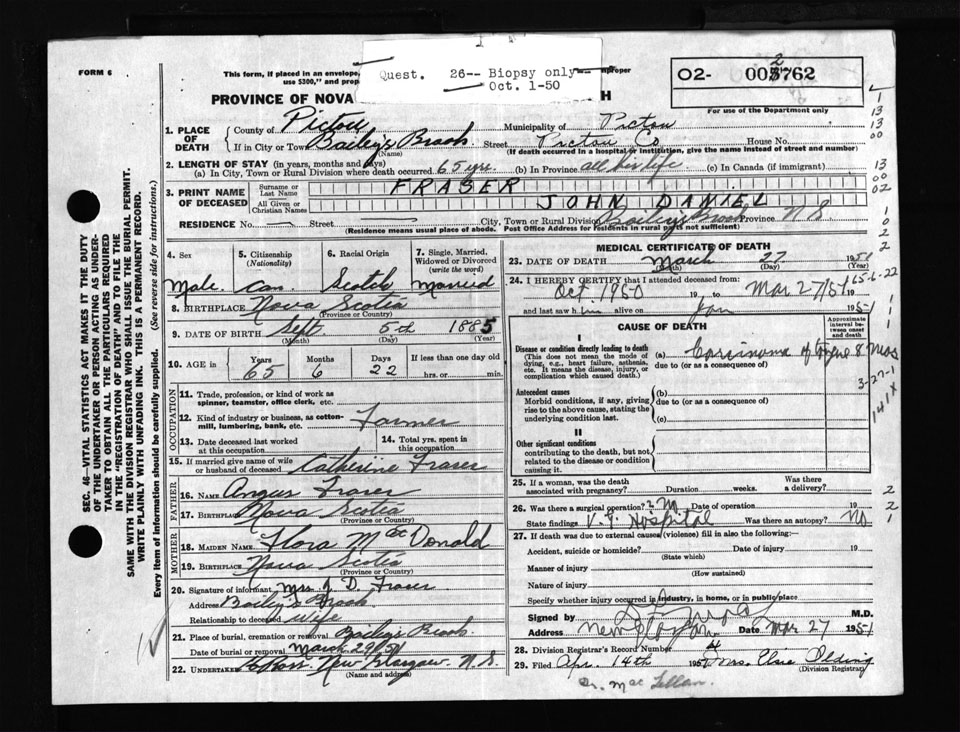 FORM 6
This form, if placed in an envelope,
use $300," and prop
improper
Quest. 26-- Biopsy only--
Oct. 1-50
O2- 002762
For use of the Department only
PROVINCE OF NOVA
H
1. PLACE OF DEATH
County of Pictou Municipality of Pictou
If in City or Town Bailey's Brook Street Pictou Co House No.
(Name) (If death occurred in a hospital or institution, give the name instead of street and number)
2. LENGTH OF STAY (in years, months and days)
(a) In City, Town or Rural Division where death occurred 65 yrs (b) In Province all his life (c) In Canada (if immigrant)
3. PRINT NAME OF DECEASED
Surname or Last Name FRASER
All Given or Christian Names JOHN DANIEL
RESIDENCE No. Street City, Town or Rural Division Bailey's Brook Province N S
(Residence means usual place of abode. Post Office Address for residents in rural parts not sufficient)
4. Sex Male
5. Citizenship (Nationality) Can.
6. Racial Origin Scotch
7. Single, Married, Widowed or Divorced (write the word) Married
8. BIRTHPLACE Nova Scotia
(Province or Country)
9. DATE OF BIRTH Sept. 5th 1885
(Month) (Day) (Year)
10. AGE in Years 65 Months 6 Days 22 If less than one day old hrs. or min.
OCCUPATION
11. Trade, profession, or kind of work as spinner, teamster, office clerk, etc.
12. Kind of industry or business, as cotton-mill, lumbering, bank, etc. Farmer
13. Date deceased last worked at this occupation
14. Total yrs. spent in this occupation
15. If married give name of wife or husband of deceased Catherine Fraser
FATHER
16. NAME Angus Fraser
17. BIRTHPLACE Nova Scotia
(Province or Country)
MOTHER
18. MAIDEN NAME Flora Mac Donald
19. BIRTHPLACE Nova Scotia
(Province or Country)
20. Signature of informant Mrs J. D. Fraser
Address Bailey's Brook
Relationship to deceased wife
21. Place of burial, cremation or removal Bailey's Brook
Date of burial or removal March 29/51
22. UNDERTAKER New Glasgow N.S.
MEDICAL CERTIFICATE OF DEATH
23. DATE OF DEATH March 27 1951
(Month) (Day) (Year)
24. I HEREBY CERTIFY that I attended deceased from:
Oct. 1950 19 to Mar 27/51 19
and last saw him alive on 1951
CAUSE OF DEATH
Approximate interval between onset and death
I
Disease or condition directly leading to death
(This does not mean the mode of dying, e.g., heart failure, asthenia, etc. It means the disease, injury, or complication which caused death.)
(a) Carcinoma of 8 mos
due to (or as a consequence of)
Antecedent causes
Morbid conditions, if any, giving rise to the above cause, stating the underlying condition last.
(b)
due to (or as a consequence of)
(c)
II
Other significant conditions
contributing to the death, but not related to the disease or condition causing it.
25. If a woman, was the death associated with pregnancy? Duration weeks. Was there a delivery?
26. Was there a surgical operation? No Date of operation 19
State findings V. G. Hospital Was there an autopsy? No
27. If death was due to external causes (violence) fill in also the following:
Accident, suicide or homicide? Date of injury 19
(State which)
Manner of injury
(How sustained)
Nature of injury
Specify whether injury occurred in industry, in home, or in public place
Signed by M.D.
Address New Glasgow Date Mar 27 1951
28. Division Registrar's Record Number 4
29. Filed Apr. 14th 1951 Mrs. Elsie Olding
(Division Registrar)
Dr. Mac Lellan.
SEC. 46—VITAL STATISTICS ACT MAKES IT THE DUTY
OF THE UNDERTAKER OR PERSON ACTING AS UNDER-
TAKER TO OBTAIN ALL THE PARTICULARS REQUIRED
IN THE "REGISTRATION OF DEATH" AND TO FILE THE
SAME WITH THE DIVISION REGISTRAR WHO SHALL ISSUE THE BURIAL PERMIT.
WRITE PLAINLY WITH UNFADING INK—THIS IS A PERMANENT RECORD.
Every item of information should be carefully supplied. (See reverse side for instructions.)
1
13
13
00
13
00
02
1
0
2
2
65-6-22
1
1
1
3-27-1
141X
2
2
1